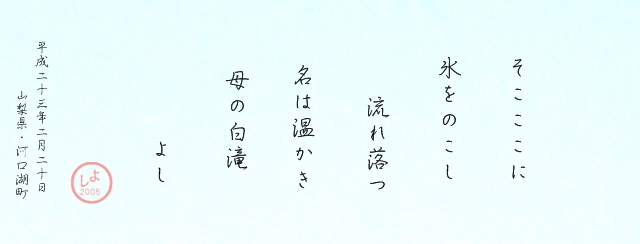 そこここに
氷をのこし
流れ落つ
名は温かき
母の白滝
よし
よし
2005
平成二十三年二月二十日
山梨県・河口湖町